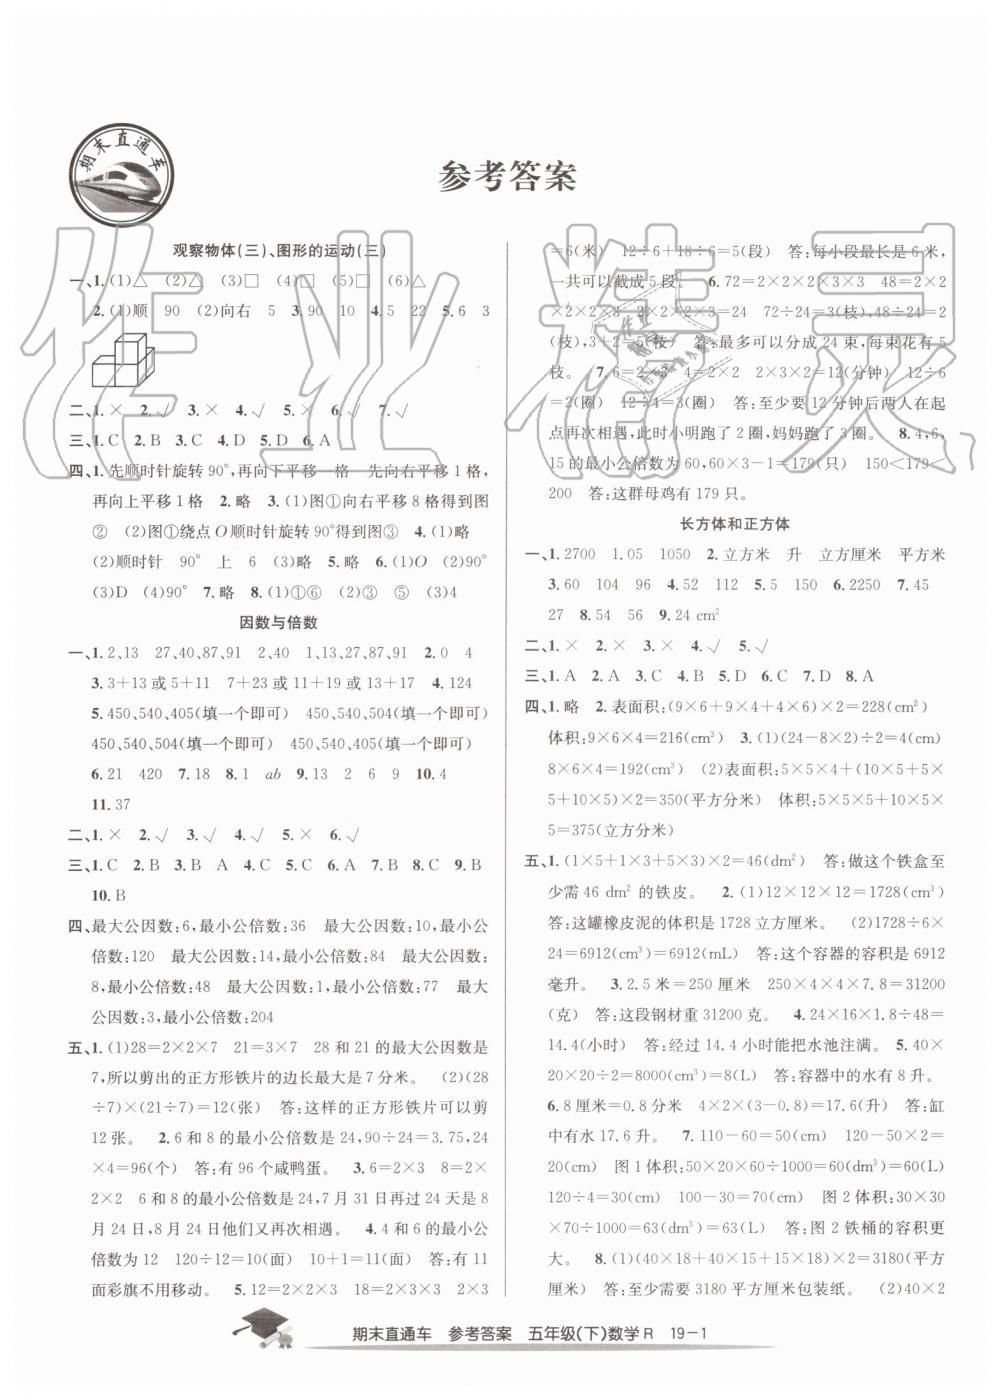 期末直通车
参考答案
观察物体(三)、图形的运动(三)
一、1.(1)△ (2)△ (3)□ (4)□ (5)□ (6)△
2.(1)顺 90 (2)向右 5 3.90 10 4.5 22 5.6 3
二、1.× 2.√ 3.× 4.√ 5.× 6.√ 7.√
三、1.C 2.B 3.C 4.D 5.D 6.A
四、1.先顺时针旋转90°,再向下平移一格 先向右平移1格,
再向上平移1格 2.略 3.(1)图①向右平移8格得到图
② (2)图①绕点O顺时针旋转90°得到图③ 4.(1)略
(2)顺时针 90° 上 6 (3)略 5.略 6.(1)O (2)90°
(3)D (4)90° 7.略 8.(1)①⑥ (2)③ ⑤ (3)4
因数与倍数
一、1.2,13 27,40,87,91 2,40 1,13,27,87,91 2.0 4
3.3+13或5+11 7+23或11+19或13+17 4.124
5.450,540,405(填一个即可) 450,540,504(填一个即可)
450,540,504(填一个即可) 450,540(填一个即可)
6.21 420 7.18 8.1 ab 9.13 2 6 9 10.4
11.37
二、1.× 2.√ 3.√ 4.√ 5.× 6.√
三、1.C 2.B 3.B A 4.C 5.C 6.A 7.B 8.C 9.B
10.B
四、最大公因数:6,最小公倍数:36 最大公因数:10,最小公
倍数:120 最大公因数:14,最小公倍数:84 最大公因数:
8,最小公倍数:48 最大公因数:1,最小公倍数:77 最大
公因数:3,最小公倍数:204
五、1.(1)28=2×2×7 21=3×7 28和21的最大公因数是
7,所以剪出的正方形铁片的边长最大是7分米。 (2)(28
÷7)×(21÷7)=12(张) 答:这样的正方形铁片可以剪
12张。 2.6和8的最小公倍数是24,90÷24=3.75,24
×4=96(个) 答:有96个咸鸭蛋。 3.6=2×3 8=2×
2×2 6和8的最小公倍数是24,7月31日再过24天是8
月24日,8月24日他们又再次相遇。 4.4和6的最小公
倍数为12 120÷12=10(面) 10+1=11(面) 答:有11
面彩旗不用移动。 5.12=2×2×3 18=2×3×3 2×3
=6(米) 12÷6+18÷6=5(段) 答:每小段最长是6米,
一共可以截成5段。 6.72=2×2×2×3×3 48=2×2
×2×2×3 2×2×2×3=24 72÷24=3(枝),48÷24=2
(枝),3+2=5(枝) 答:最多可以分成24束,每束花有5
枝。 7.6=2×3 4=2×2 2×3×2=12(分钟) 12÷6
=2(圈) 12÷4=3(圈) 答:至少要12分钟后两人在起
点再次相遇,此时小明跑了2圈,妈妈跑了3圈。 8.4,6,
15的最小公倍数为60,60×3-1=179(只) 150<179<
200 答:这群母鸡有179只。
长方体和正方体
一、1.2700 1.05 1050 2.立方米 升 立方厘米 平方米
3.60 104 96 4.52 112 5.5 150 6.2250 7.45
27 8.54 56 9.24 cm²
二、1.× 2.× 3.× 4.√ 5.√
三、1.A 2.A 3.C 4.B 5.D 6.C 7.D 8.A
四、1.略 2.表面积:(9×6+9×4+4×6)×2=228(cm²)
体积:9×6×4=216(cm³) 3.(1)(24-8×2)÷2=4(cm)
8×6×4=192(cm³) (2)表面积:5×5×4+(10×5+5×
5+10×5)×2=350(平方分米) 体积:5×5×5+10×5×
5=375(立方分米)
五、1.(1×5+1×3+5×3)×2=46(dm²) 答:做这个铁盒至
少需46 dm²的铁皮。 2.(1)12×12×12=1728(cm³)
答:这罐橡皮泥的体积是1728立方厘米。 (2)1728÷6×
24=6912(cm³)=6912(mL) 答:这个容器的容积是6912
毫升。 3.2.5米=250厘米 250×4×4×7.8=31200
(克) 答:这段钢材重31200克。 4.24×16×1.8÷48=
14.4(小时) 答:经过14.4小时能把水池注满。 5.40×
20×20÷2=8000(cm³)=8(L) 答:容器中的水有8升。
6.8厘米=0.8分米 4×2×(3-0.8)=17.6(升) 答:缸
中有水17.6升。 7.110-60=50(cm) 120-50×2=
20(cm) 图1体积:50×20×60÷1000=60(dm³)=60(L)
120÷4=30(cm) 100-30=70(cm) 图2体积:30×30
×70÷1000=63(dm³)=63(L) 答:图2铁桶的容积更
大。 8.(1)(40×18+40×15+15×18)×2=3180(平方
厘米) 答:至少需要3180平方厘米包装纸。 (2)40×2
期末直通车 参考答案 五年级(下)数学R 19-1
作业精灵